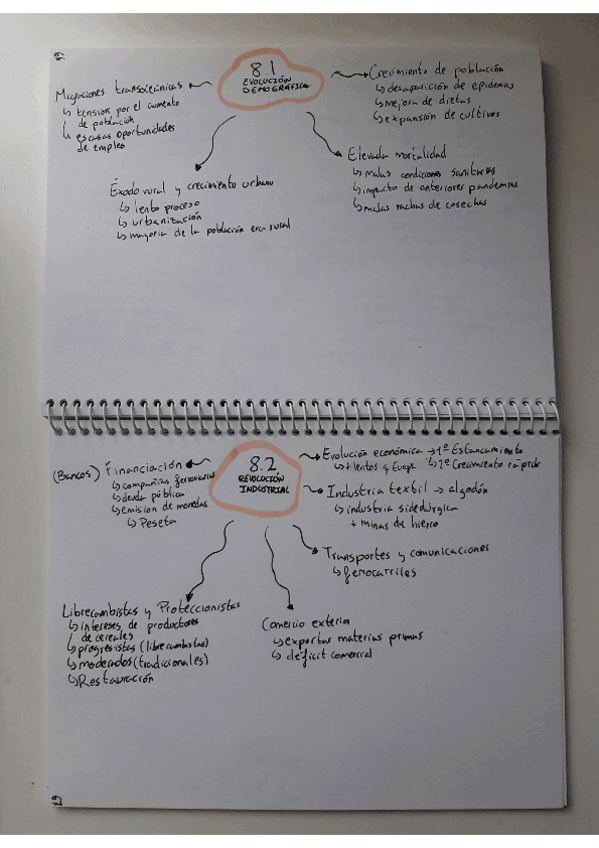 8.1
EVOLUCIÓN
DEMOGRÁFICA
Migraciones transoceánicas
↳ tensión por el aumento
de población
↳ escasas oportunidades
de empleo
Crecimiento de población
↳ desaparición de epidemias
↳ mejora de dietas
↳ expansión de cultivos
Éxodo rural y crecimiento urbano
↳ lento proceso
↳ urbanización
↳ mayoría de la población era rural
Elevada mortalidad
↳ malas condiciones sanitarias
↳ impacto de anteriores pandemias
↳ malas rachas de cosechas
8.2
REVOLUCIÓN
INDUSTRIAL
(Bancos) Financiación
↳ compañías ferroviarias
↳ deuda pública
↳ emisión de monedas
↳ Peseta
Evolución económica → 1º Estancamiento
↳ + lentos q Europa ↳ 2º Crecimiento rápido
Industria textil → algodón
↳ industria siderúrgica
+ minas de hierro
Transportes y comunicaciones
↳ ferrocarriles
Librecambistas y Proteccionistas
↳ intereses de productores
de cereales
↳ progresistas (librecambistas)
↳ moderados (tradicionales)
↳ Restauración
Comercio exterior
↳ exportar materias primas
↳ déficit comercial